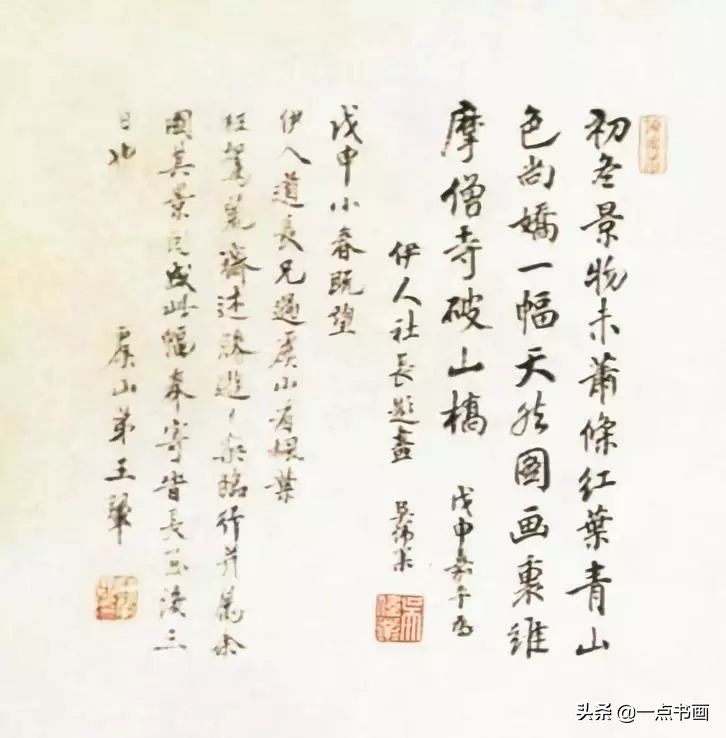 初冬景物未蕭條紅葉青山
色尚嬌一幅天然圖画裏維
摩僧寺破山橋 戊申嘉平為
伊人社長題畫 吳偉業
戊申小春既望
伊人道長兄過虞山看楓葉
枉駕荒齋述勝遊之樂臨行并屬余
圖其景即成此幅奉寄旹長至後三
日也 虞山弟王翬
头条 @一点书画